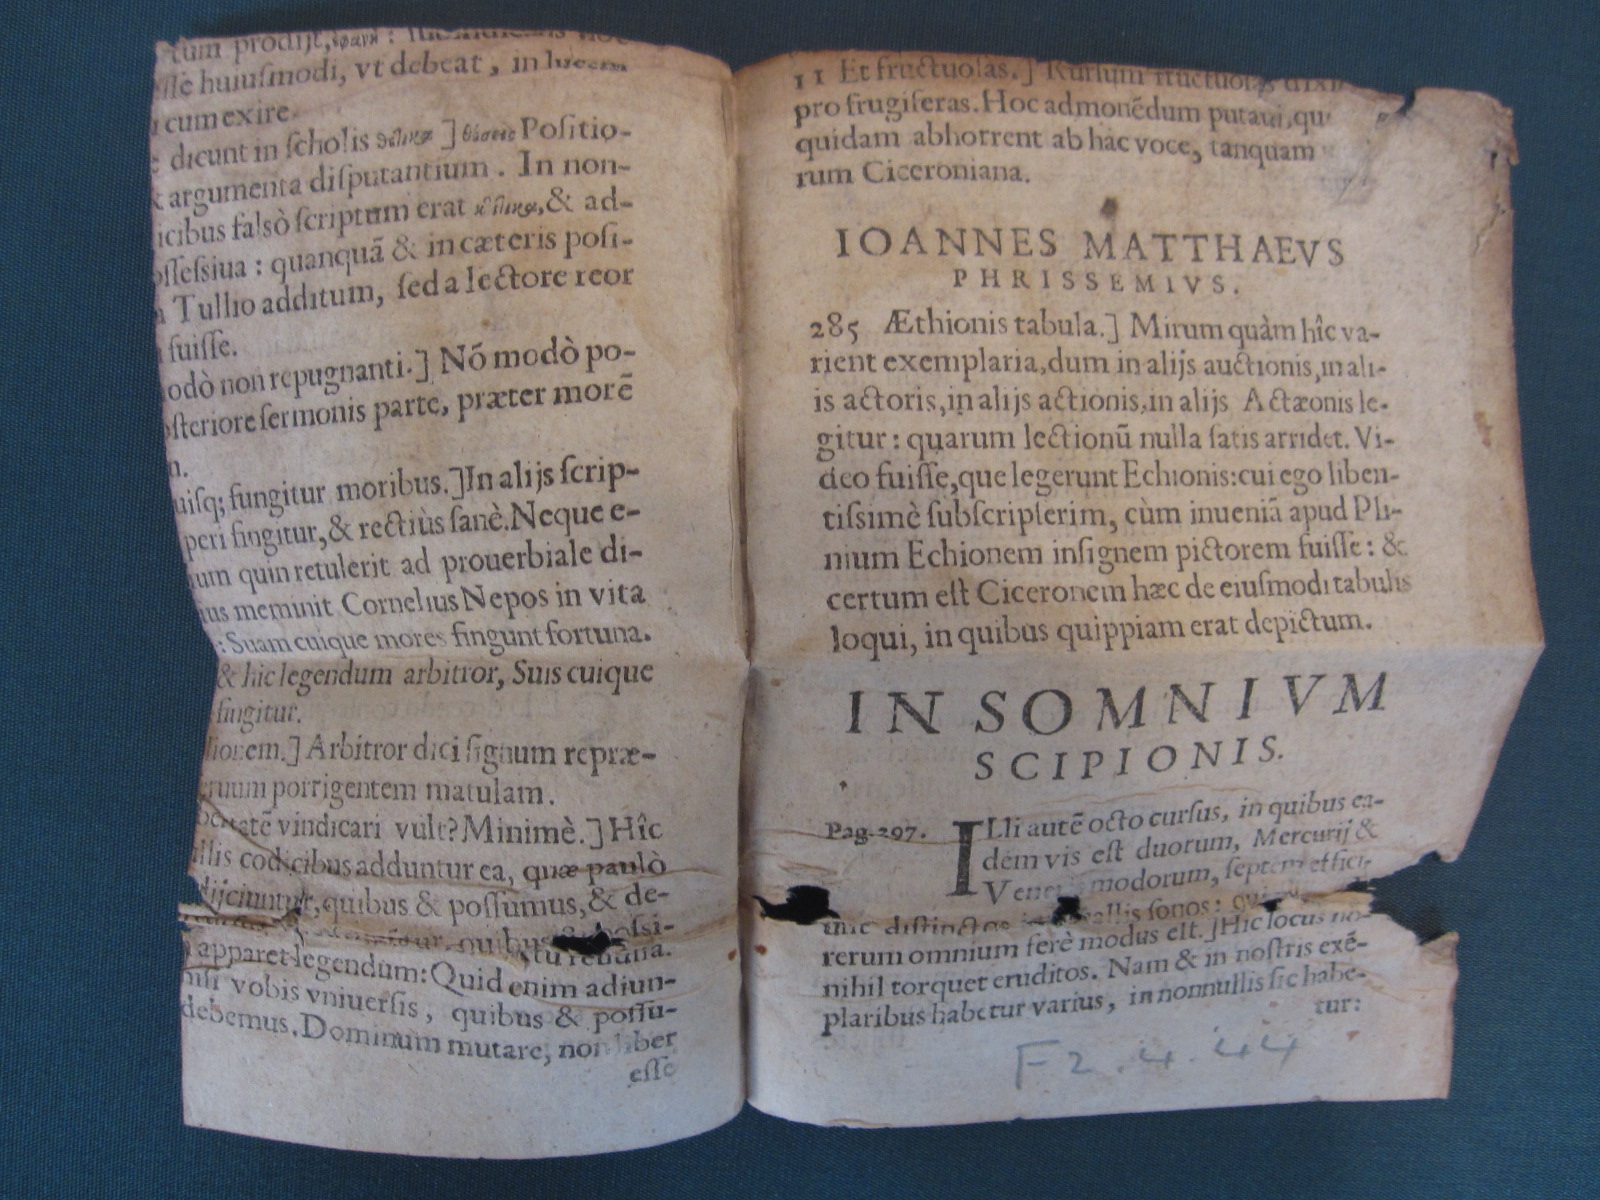 tum prodijt,
sse huiusmodi, vt debeat, in lucem
cum exire.
dicunt in scholis θετικα ] θέσεις Positio-
argumenta disputantium. In non-
icibus falsò scriptum erat & ad-
ossessiua: quanquā & in cæteris posi-
Tullio additum, sed a lectore reor
fuisse.
odò non repugnanti.] Nō modò po-
osteriore sermonis parte, præter morē
n.
uisq; fungitur moribus.] In alijs scrip-
peri fingitur, & rectiùs sanè. Neque e-
um quin retulerit ad prouerbiale di-
ius meminit Cornelius Nepos in vita
: Suam cuique mores fingunt fortuna.
& hic legendum arbitror, Suis cuique
fingitur.
lionem.] Arbitror dici signum repræ-
eruum porrigentem matulam.
bertatē vindicari vult? Minimè.] Hîc
illis codicibus adduntur ea, quæ paulò
dijciuntur, quibus & possumus, & de-
quibus & possi-
apparet legendum: Quid enim adiun-
nisi vobis vniuersis, quibus & possu-
debemus. Dominum mutare, non liber
esse
11 Et fructuosas.] Rursum fructuosas dixit
pro frugiferas. Hoc admonēdum putaui,
quidam abhorrent ab hac voce, tanquam
rum Ciceroniana.
IOANNES MATTHAEVS
PHRISSEMIVS.
285 Æthionis tabula.] Mirum quàm hîc va-
rient exemplaria, dum in alijs auctionis, in ali-
is actoris, in alijs actionis, in alijs Actæonis le-
gitur: quarum lectionū nulla satis arridet. Vi-
deo fuisse, que legerunt Echionis: cui ego liben-
tissimè subscripserim, cùm inueniā apud Pli-
nium Echionem insignem pictorem fuisse: &
certum est Ciceronem hæc de eiusmodi tabulis
loqui, in quibus quippiam erat depictum.
IN SOMNIVM
SCIPIONIS.
Pag. 297. ILli autē octo cursus, in quibus ea-
dem vis est duorum, Mercurij &
modorum, septem effici-
unt distinctos sonos:
rerum omnium ferè modus est.] Hic locus no-
nihil torquet eruditos. Nam & in nostris exē-
plaribus habetur varius, in nonnullis sic habe-
tur:
F2.4.44